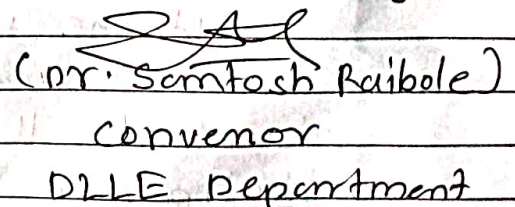 (Dr. Santosh Raibole)
Convenor
DLLE Department